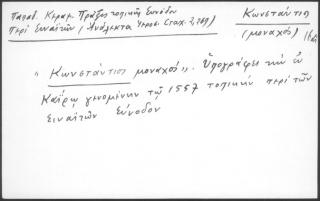 Παπαδ. Κεραμ. Πράξις τοπικῆς Συνόδου
Περὶ Σιναϊτῶν (Ἀνάλεκτα Ἱεροσ. Σταχ. 2,
Κωνστάντιος
(μοναχός) 16αι
"Κωνστάντιος μοναχός". Ὑπογράφει τὴν ἐν
Καΐρῳ γενομένην τῷ 1557 τοπικὴν περὶ τῶν
Σιναϊτῶν Σύνοδον